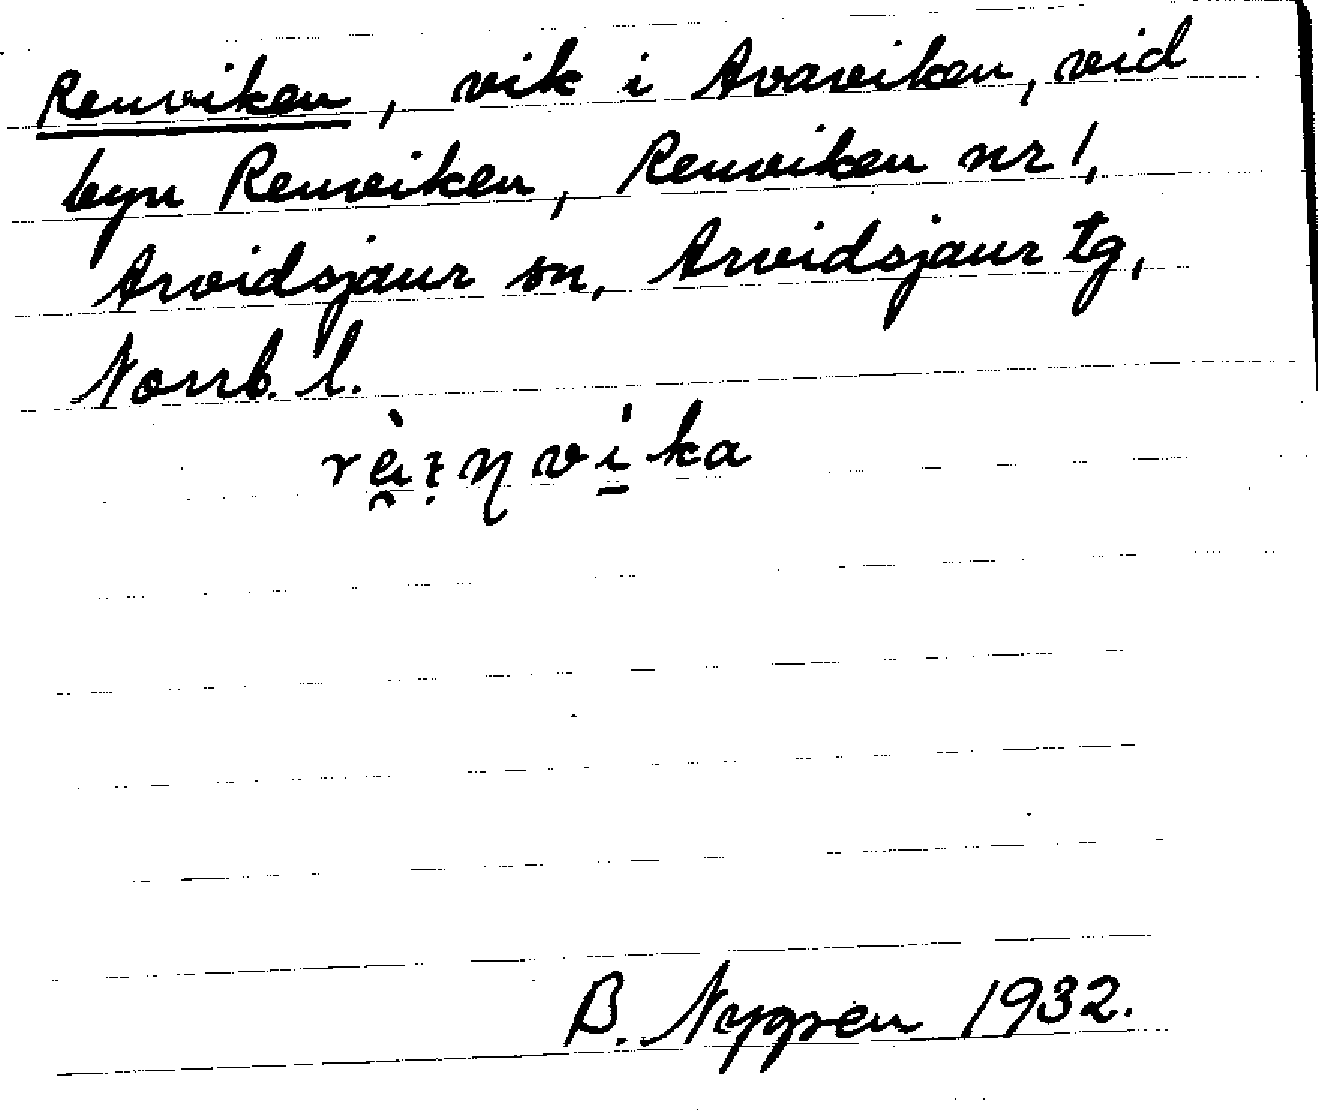 Renviken, vik i Avaviken, vid
byn Renviken, Renviken nr 1,
Arvidsjaur sn, Arvidsjaur tg,
Norrb. l.
B. Nygren 1932.